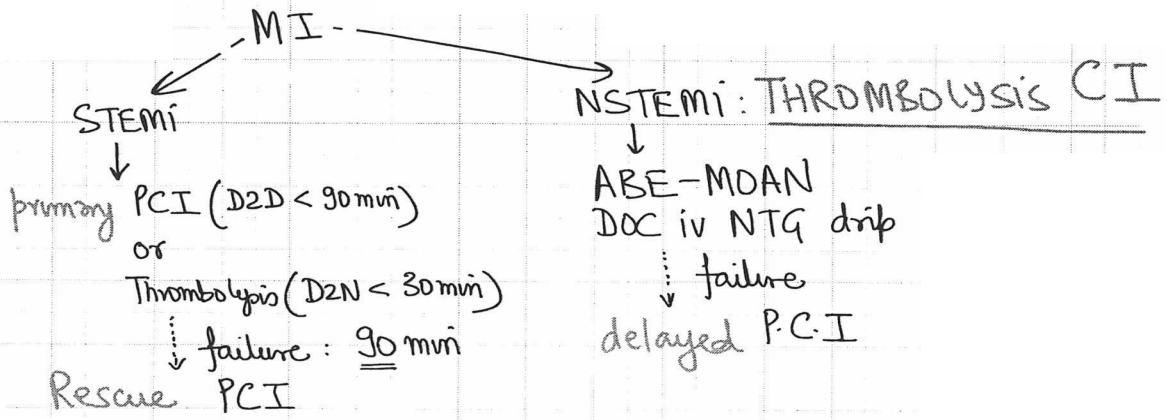 MI
STEMi
primary PCI (D2D < 90min)
or
Thrombolysis (D2N < 30min)
failure: 90 min
Rescue PCI
NSTEMi: THROMBOLYSIS CI
ABE-MOAN
DOC iv NTG drip
failure
delayed P.C.I